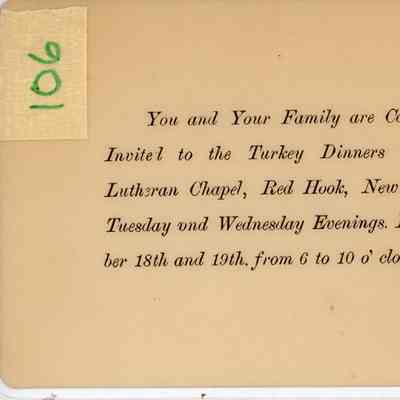 106
You and Your Family are Co
Invited to the Turkey Dinners
Lutheran Chapel, Red Hook, New
Tuesday vnd Wednesday Evenings.
ber 18th and 19th, from 6 to 10 o' clo